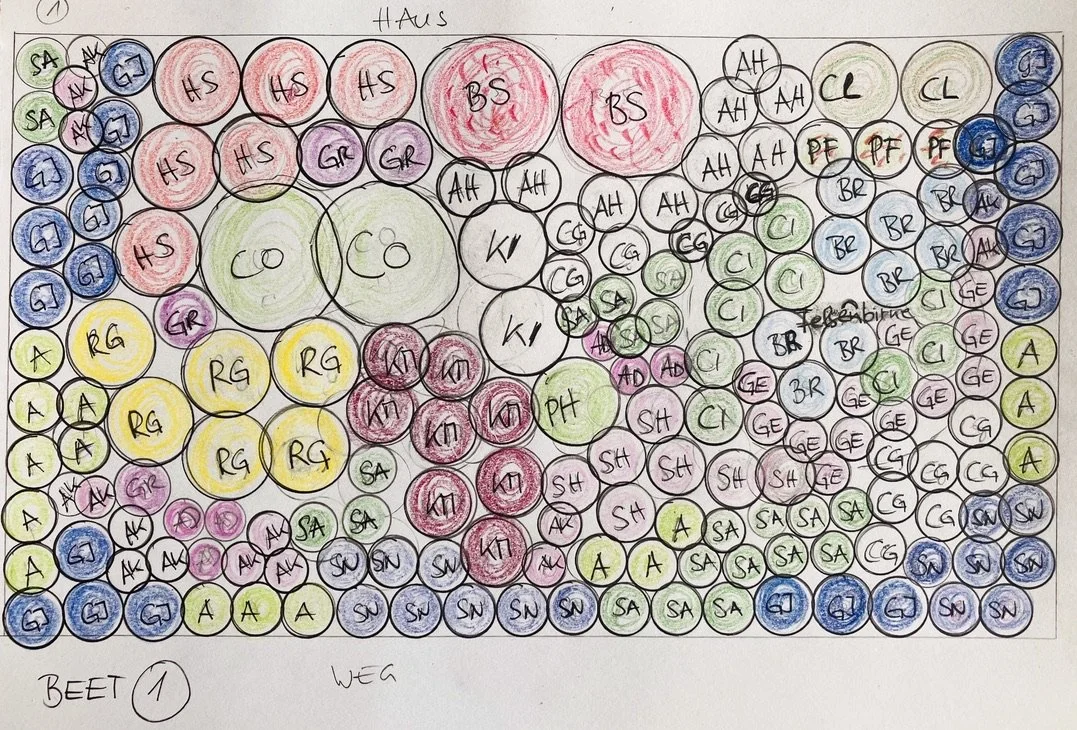 1
HAUS
SA AK GJ HS HS HS BS BS AH CL CL GJ
AK AH AH GJ
SA AK GJ
HS HS GR GR AH AH PF PF PF GJ GJ
GJ GJ AH AH BR BR AK
GJ AH AH CG CG
GJ GJ HS CO CO KI CG CG CG CI CI BR BR BR AK GJ
GJ CG SA CI BR CI GE GJ
GR SA SA CI Felsenbirne
A RG RG RG KM KM KI AD SA SA CI BR BR GE CI GE A
AD AD GE BR GE CI GE GE
A A RG KM KM KM PH SH CI GE GE CG A
A A RG RG SA KM SH SH SH SH GE GE GE CG CG CG A
AK AK GR KM KM SH
A AK AD AD AK SA SA AK SH A SA SA SA SA CG CG SN SN
A GJ AK AK AD AK AK SN SN SN KM AK A A SA SA SA SA CG SN SN SN
GJ GJ GJ A A A SN SN SN SN SN SA SA SA GJ GJ GJ SN SN
BEET 1
WEG